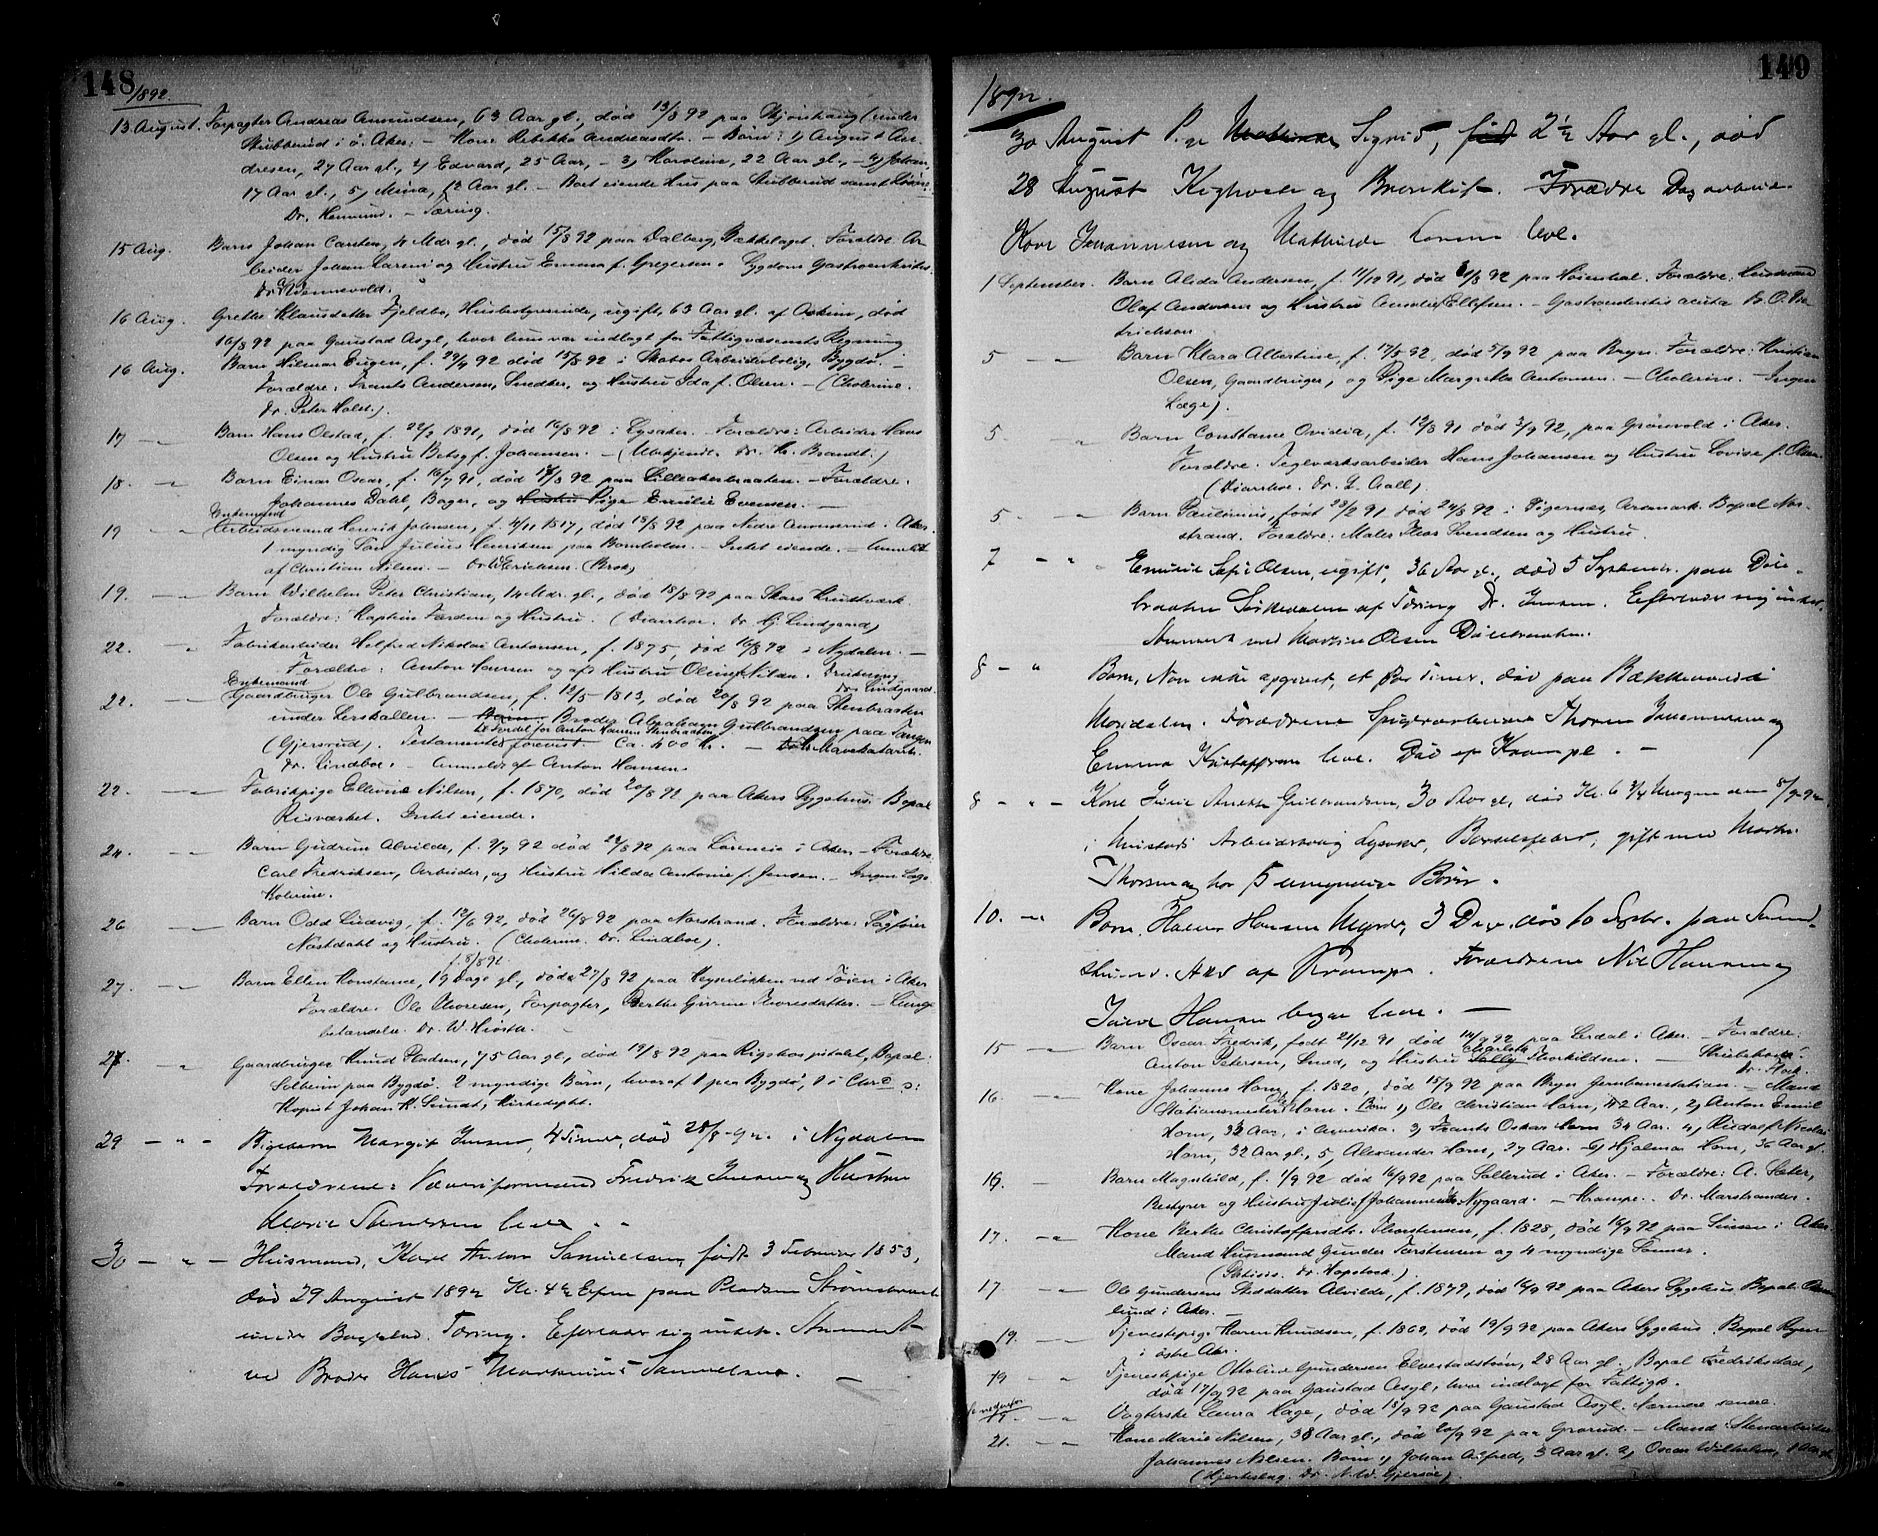 148
1892.
13 August. Forpagter Andreas Amundsen, 63 Aar gl., død 13/8 92 paa (under
Stubberud i Ø. Aker: – Kone Rebekka Andreasdtr. – Børn: 1) August An-
dresen, 27 Aar gl., 2) Edvard, 25 Aar, – 3) Karoline, 22 Aar gl., – 4) Johan,
17 Aar gl., 5) Mina, 12 Aar gl. – Boet eiende Hus paa Stubberud samt
Dr. – Tæring.
15 Aug. Barn Johan Carsten, 4 Mdr gl., død 15/8 92 paa Dalberg, Bækkelaget. Forældre Ar-
beider Johan Larsen og Hustru Emma f. Gregersen. Sygdom Gastroenteritis.
Dr.
16 Aug. Grethe Klausdatter Fjeldbo, Husbestyrerinde, ugift, 63 Aar gl. af Askim, død
16/8 92 paa Gaustad Asyl, hvor hun var indlagt for Fattigvæsenets Regning
16 Aug. Barn Hilmar Eugen, f. 29/4 92 død 15/8 92 i Skabos Arbeiderbolig, Bygdø. –
Forældre: Frants Andersen, Snedker, og Hustru Ida f. Olsen. – (Cholerine.
Dr. Peter Holst.)
17 – " Barn Hans Olstad, f. 22/2 1891, død 16/8 92 i Lysaker. Forældre: Arbeider Hans
Olsen og Hustru Betsy f. Johansen. – ( Dr. Kr. Brandt.)
18. – " Barn Einar Oscar, f. 16/7 91, død 17/8 92 paa Lilleakerbraaten. – Forældre:
Johannes Dahl, Bager, og Hustru Pige Emilie Evensen. –
Enkemand
19 – " Arbeidsmand Henrik Johnsen, f. 4/11 1817, død 18/8 92 paa Nedre Ammerud i Aker.
1 myndig Søn Julius Henriksen paa Bornholm. – Intet eiende. – Anmeldt
af Christian Nilsen. – Dr Erichsen. (Brok)
19. – " Barn Wilhelm Peter Christian, 14 Mdr. gl., død 18/8 92 paa Skars Krudtværk.
Forældre: Kaptein Færden og Hustru. (Diarrhoe. Dr. Hj. Lindgaard)
22. – " Fabrikarbeider Helfred Nikolai Antonsen, f. 1875, død 16/8 92 i Nydalen. –
Forældre: Anton Hansen og afd Hustru Oline Nilsdr. Drukning.
Dr. Lindgaard.
Enkemand
22. – Gaardbruger Ole Gulbrandsen, f. 12/5 1813, død 20/8 92 paa Stenbraaten
under Lerskallen. – Børn Broder Abraham Gulbrandsen paa Tangen
til Fordel for Anton Hansen Stenbraaten
(Gjersrud). Testamente forevist. Ca. 400 Kr. – Mavekatarrh.
Dr. Lindboe. – Anmeldt af Anton Hansen.
22. – Fabrikpige Ellevine Nilsen, f. 1870, død 20/8 92 paa Akers Sygehus. Bopæl
Risværket. Intet eiende.
24. – " Barn Gudrun Alvilde, f. 9/7 92 død 24/8 92 paa i Aker – Forældre:
Carl Fredriksen, Arbeider, og Hustru Hilda Antonie f. Jensen. – Ingen Læge.
Kolerine.
26 – Barn Odd Ludvig, f. 12/6 92, død 26/8 92 paa Norstrand. Forældre: Sagfører
Nøstdahl og Hustru. (Cholerine. Dr. Lindboe).
f. 8/8 92
27. – Barn Ellen Konstance, 19 Dage gl., død 27/8 92 paa ved Tøien i Aker
Forældre: Ole Thoresen, Forpagter, Berthe Gurine Thoresdatter. – Lunge-
betændelse. Dr. W.
27. – " Gaardbruger Knud Pladsen, 75 Aar gl., død 19/8 92 paa Rigshospitalet, Bopæl
Solheim paa Bygdø. 2 myndige Børn, hvoraf 1 paa Bygdø, 1 i Chra o:
Kopist Johan K. Sundt, Kirkedept.
29 – " – Margit Jensen, 4 Timer, død 28/8-92. i Nydalen
Forældrene: Væveriformand Fredrik Jensen og Hustru
Marie leve. –
30 – " – Husmand, Karl Anton Samuelsen, født 3 Februar 1853,
død 29 August 1892 Kl. 4½ Efm paa Pladsen
under Bogstad. Tæring. Efterlader sig
ved Broder Hans Samuelsen. –
149
1892.
30 August Pige Sigrid, født 2½ Aar gl., død
28 August Kighoste og Bronkit. Forældre Dagarbeid.
Karl Johannesen og Mathilde leve.
1 September. Barn Alida Andersen, f. 11/12 91, død 31/8 92 paa Forældre: Husmand
Olaf Andersen og Hustru Ellefsen. – Gastroenteritis acuta Dr. O.
5 – " Barn Klara Albertine, f. 17/5 92, død 5/9 92 paa Bryn. Forældre: Kristian
Olsen, Gaardbruger, og Pige Margrethe Antonsen. – Cholerine. – Ingen
Læge).
5. " Barn Constance Ovidia, f. 12/8 91 død 3/9 92, paa Grønvold i Aker.
Forældre: Teglverksarbeider Hans Johansen og Hustru Lovise f. Olsen.
(Diarrhoe. Dr. L. Aall).
5 – " Barn Paulinius, født 23/2 91 død 24/8 92 i Tigernæs, Aremark. Bopæl Nor-
strand. Forældre: Maler Thos Svendsen og Hustru.
7 – " Emilie Sofie Olsen, ugift, 36 Aar gl., død 5 September paa
Sørkedalen af Tæring Dr. Jensen. Efterlader sig
ved Martin Olsen
8 – " Barn, Navn ikke opgivet, et Par Timer, død paa
Maridalen. Forældrene Thorvald Johannesen og
Emma Kristoffersen leve. Død af Krampe. –
8 – " – Kone Julie Gulbrandsen, 30 Aar gl., død Kl. 6 3/4 Morgen den 8/9-92
i Arbeiderbolig Lysaker, Barselfeber, gift med
og har 5 umyndige Børn.
10. – " Barn, Hansen 3 Dage død 10 Septbr. paa
Død af Krampe. Forældrene Nils Hansen og
Hansen begge leve. –
15 – " Barn Oscar Fredrik, født 21/12 91 død 14/9 92 paa Lerdal i Aker – Forældre:
Anton Petersen, Smed, og Hustru Charlotte Thorkildsen. – Strubehoste.
16. – " Kone Johanne Horn, f. 1820, død 15/9 92 paa Bryn Jernbanestation – Mand
Stationsmester Horn. Børn 1) Ole Christian Horn, 42 Aar., 2) Anton Emil
Horn, 38 Aar, i Amerika. 3) Frants Oskar Horn 34 Aar. 4) Nicolai
Horn, 32 Aar gl., 5) Alexander Horn, 27 Aar. – 6) Hjalmar Horn, 36 Aar gl.
16. – Barn Magnhild, f. 1/9 92 død 16/9 92 paa Sollerud i Aker. – Forældre: A. Sæter,
Bestyrer og Hustru f. Nygaard. – Krampe. Dr. Marstrander.
17. – " Kone Berthe Christoffersdtr. Thorstensen, f. 1828, død 16/9 92 paa Sinsen i Aker.
Mand Husmand Gunder Torstensen og 4 myndige Sønner.
(Phtisis. Dr. Hopstock.)
17 – " Ole Gundersens Steddatter Alvilde, f. 1879, død 16/9 92 paa Akers Sygehus Bopæl
lund i Aker. –
19. – " Tjenestepige Karen Knudsen, f. 1862, død 19/9 92 paa Akers Sygehus. Bopæl Ryen
i Østre Aker.
19 – " Tjenestepige Ottoline Gundersen 28 Aar gl. Bopæl Fredrikstad,
død 17/9 92 paa Gaustad Asyl, hvor indlagt for Fattigk.
– " Vogterske Laura Hage, død 18/9 92 paa Gaustad Asyl. Nærmere senere.
21. – " Kone Marie Nilsen, 38 Aar gl., død 20/9 92 paa Grorud. – Mand: Stenarbeider
Johannes Nilsen. Børn: 1) Johan Alfred, 3 Aar gl. 2) Oscar Wilhelm, 1 Aar gl.
(Hjerteslag. Dr. N. W. Gjersøe).